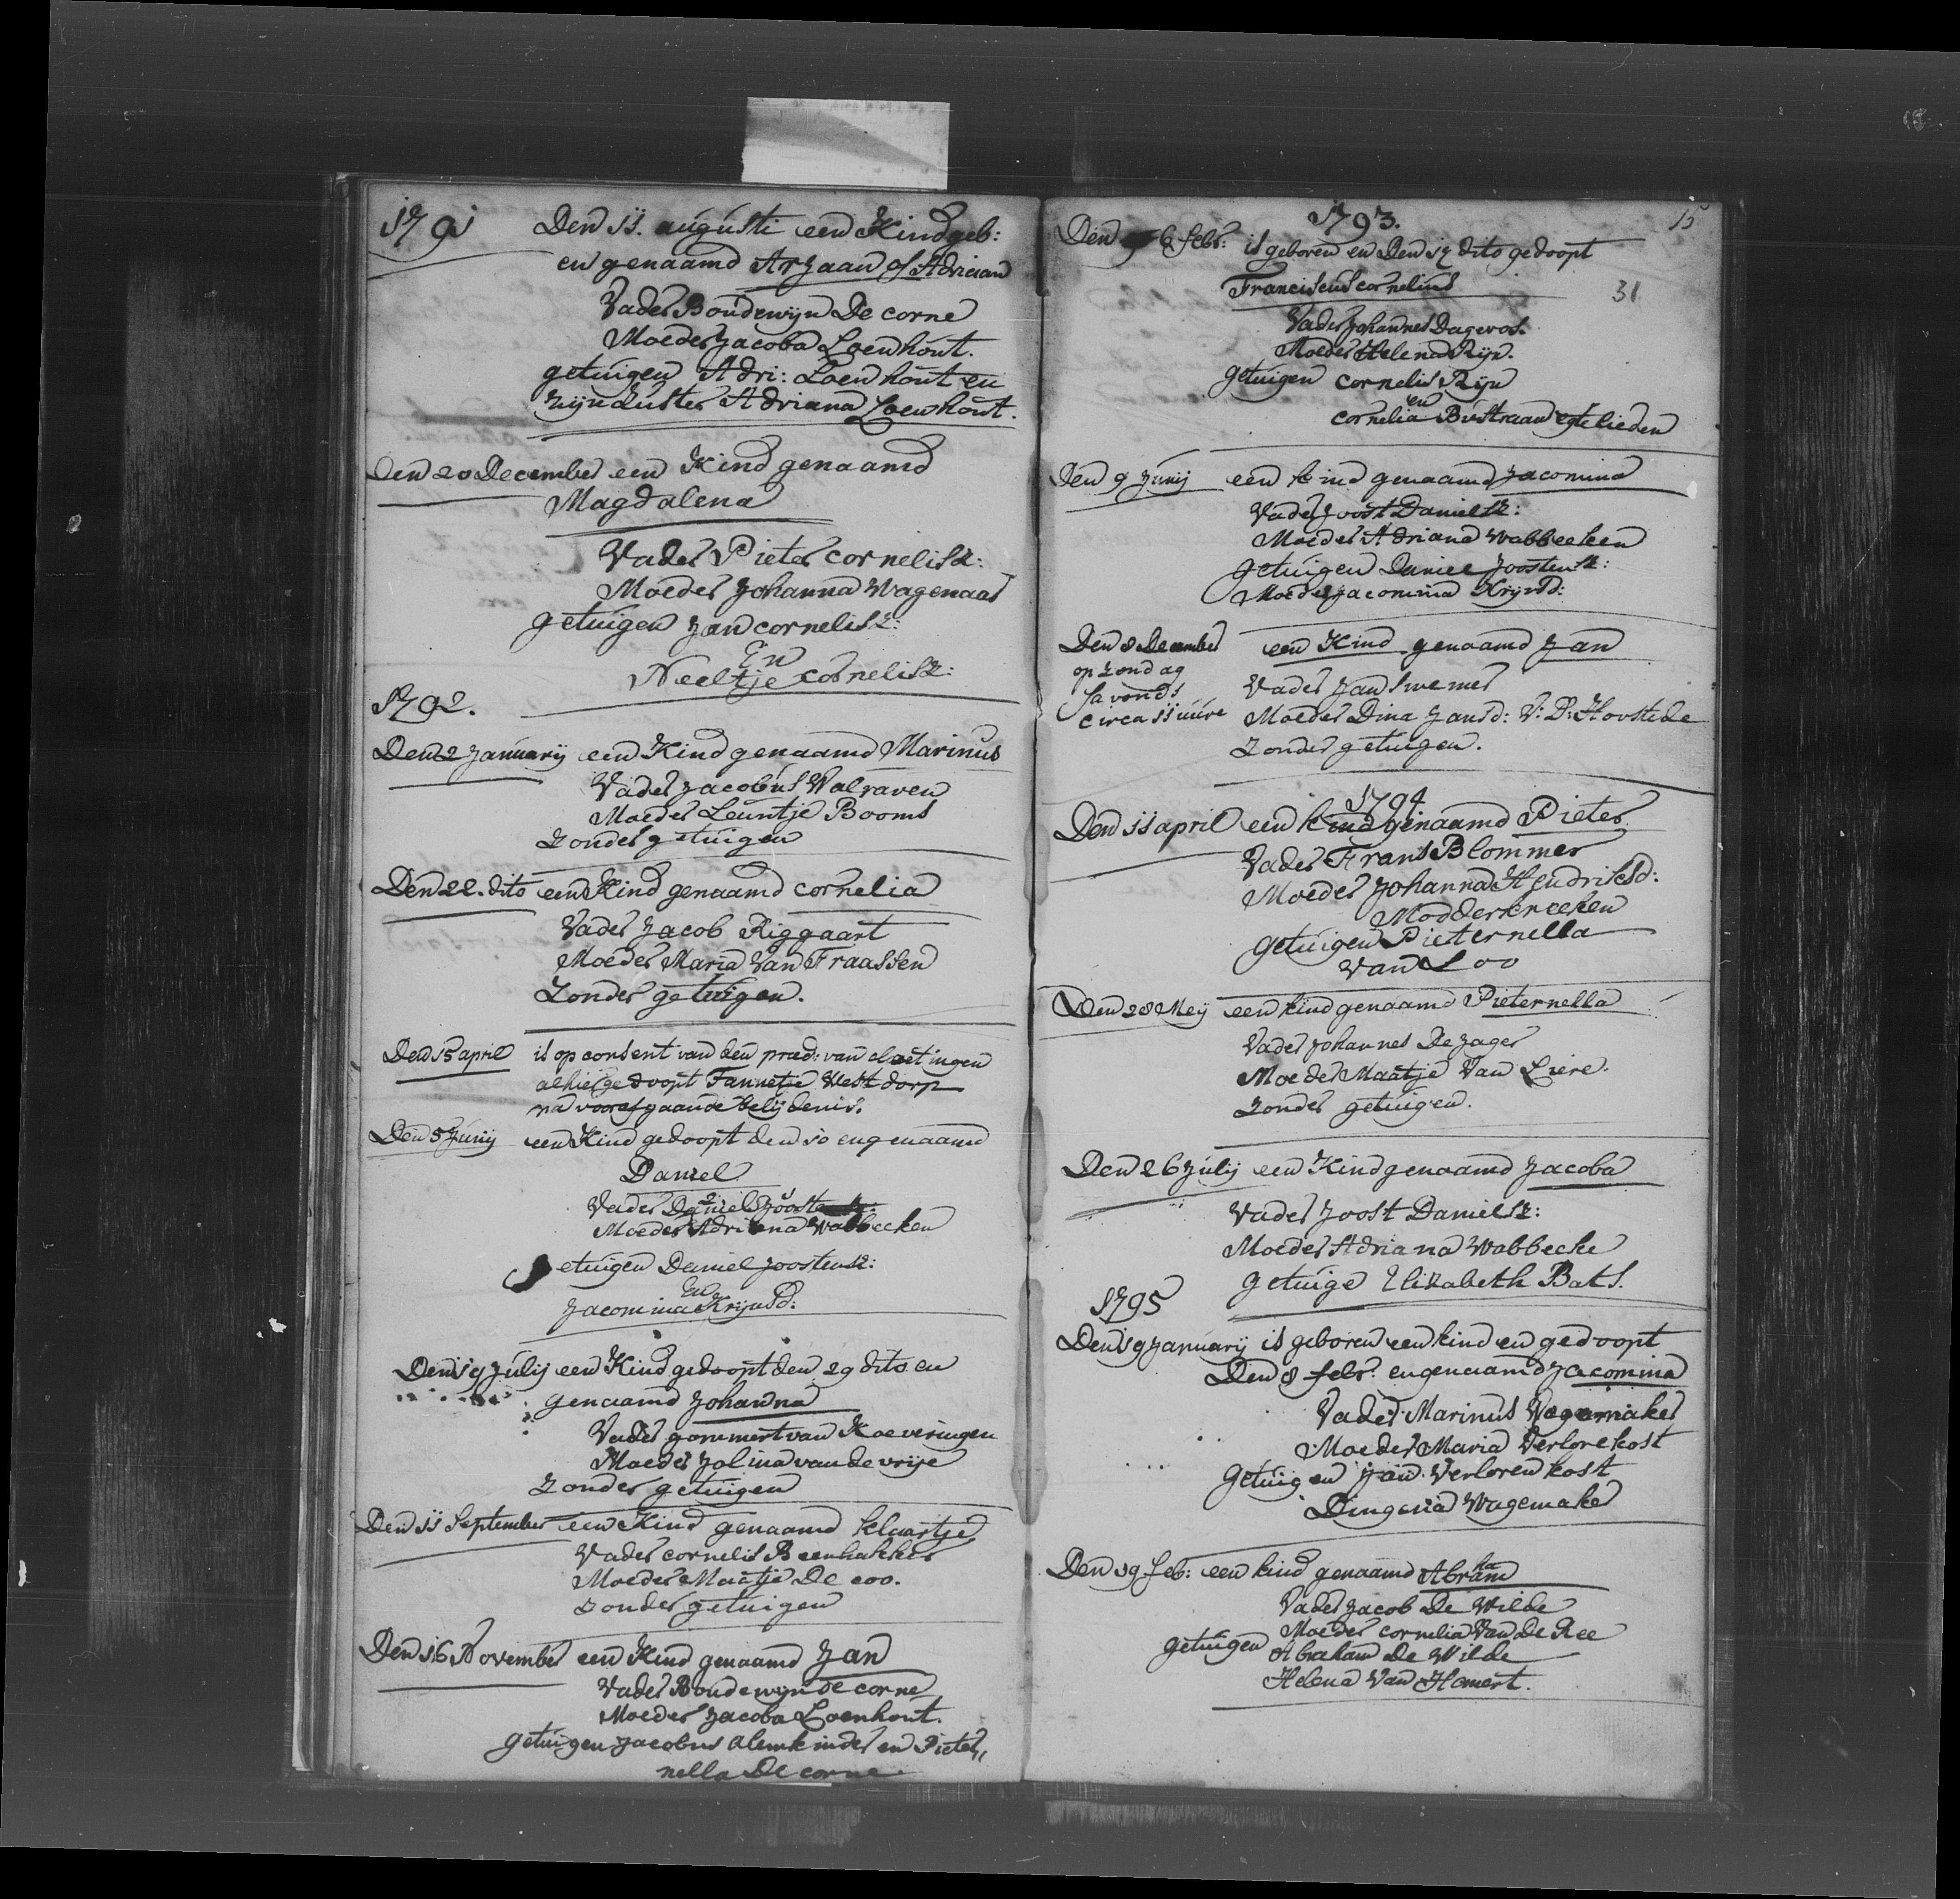 1791
Den 11. augusti een Kind geb:
en genaamd Arjaan of Adriaan
Vader Boudewijn De corne
Moeder Jacoba Loenhout.
getuigen Adri: Loenhout en
zijn zuster Adriana Loenhout.
Den 20 December een Kind genaamd
Magdalena
Vader Pieter cornelisz:
Moeder Johanna Wagenaar
getuigen Jan cornelisz:
En
Neeltje cornelisz:
1792.
Den 2 January een Kind genaamd Marinus
Vader Jacobus Walraven
Moeder Leuntje Booms
Zonder getuigen
Den 22. dito een Kind genaamd cornelia
Vader Jacob Riggaart
Moeder Maria Van Fraassen
Zonder getuigen.
Den 15 april is op consent van den præd: van cloetingen
alhier gedoopt Tannetje Westdorp
na voorafgaande belijdenis.
Den 5 Junij een Kind gedoopt den 10 en genaamd
Daniel
Vader Daniel Joost
Moeder Adriana Wabbeeken
Getuigen Daniel Joostensz:
En
Jacomina Krijnsd:
Den 19 Julij een Kind gedoopt den 29 dito en
genaamd Johanna
Vader gommert van Koeveringen
Moeder Jolina van de vrije
Zonder getuigen
Den 11 September een Kind genaamd klaartje
Vader cornelis Beenhakker
Moeder Maatje De coo.
Zonder getuigen
Den 16 November een Kind genaamd Jan
Vader Boudewijn de corne
Moeder Jacoba Loenhout.
getuigen Jacobus Alemkinder en Pieter„
nella De corne
15
1793.
Den 6 febr: is geboren en Den 17 dito gedoopt
Franciscus cornelius
31
Vader Johannes Dagevos.
Moeder Helena Rijn.
getuigen cornelis Rijn
en
cornelia Bustraan egtelieden
Den 9 Junij een kind genaamd Jacomina
Vader Joost Danielsz:
Moeder Adriana Wabbeeken
getuigen Daniel Joostensz:
Moeder Jacomina Krijnsd:
Den 8 December een Kind genaamd Jan
op zondag
savonds
circa 11 uure
Vader Jan Swemer
Moeder Dina Jansd: V: D: Hoostede
Zonder getuigen.
1794
Den 11 april een kind genaamd Pieter
Vader Frans Blommer
Moeder Johanna Hendriksd:
Modderkreeken
getuigen Pieternella
Van Loo
Den 28 Meij een kind genaamd Pieternella
Vader Johannes De Jager
Moeder Maatje Van Liere.
Zonder getuigen.
Den 26 Julij een Kind genaamd Jacoba
Vader Joost Danielsz:
Moeder Adriana Wabbecke
getuige Elizabeth Bats.
1795
Den 19 January is geboren een kind en gedoopt
Den 8 febr: en genaamd Jacomina
Vader Marinus Wagemaker
Moeder Maria Verlorekost
Getuigen Jan Verlorenkost
Dingena Wagemaker
Den 19 feb: een kind genaamd Abraham
Vader Jacob De Wilde
Moeder cornelia Van De Ree
getuigen Abraham De Wilde
Helena Van Hemert.